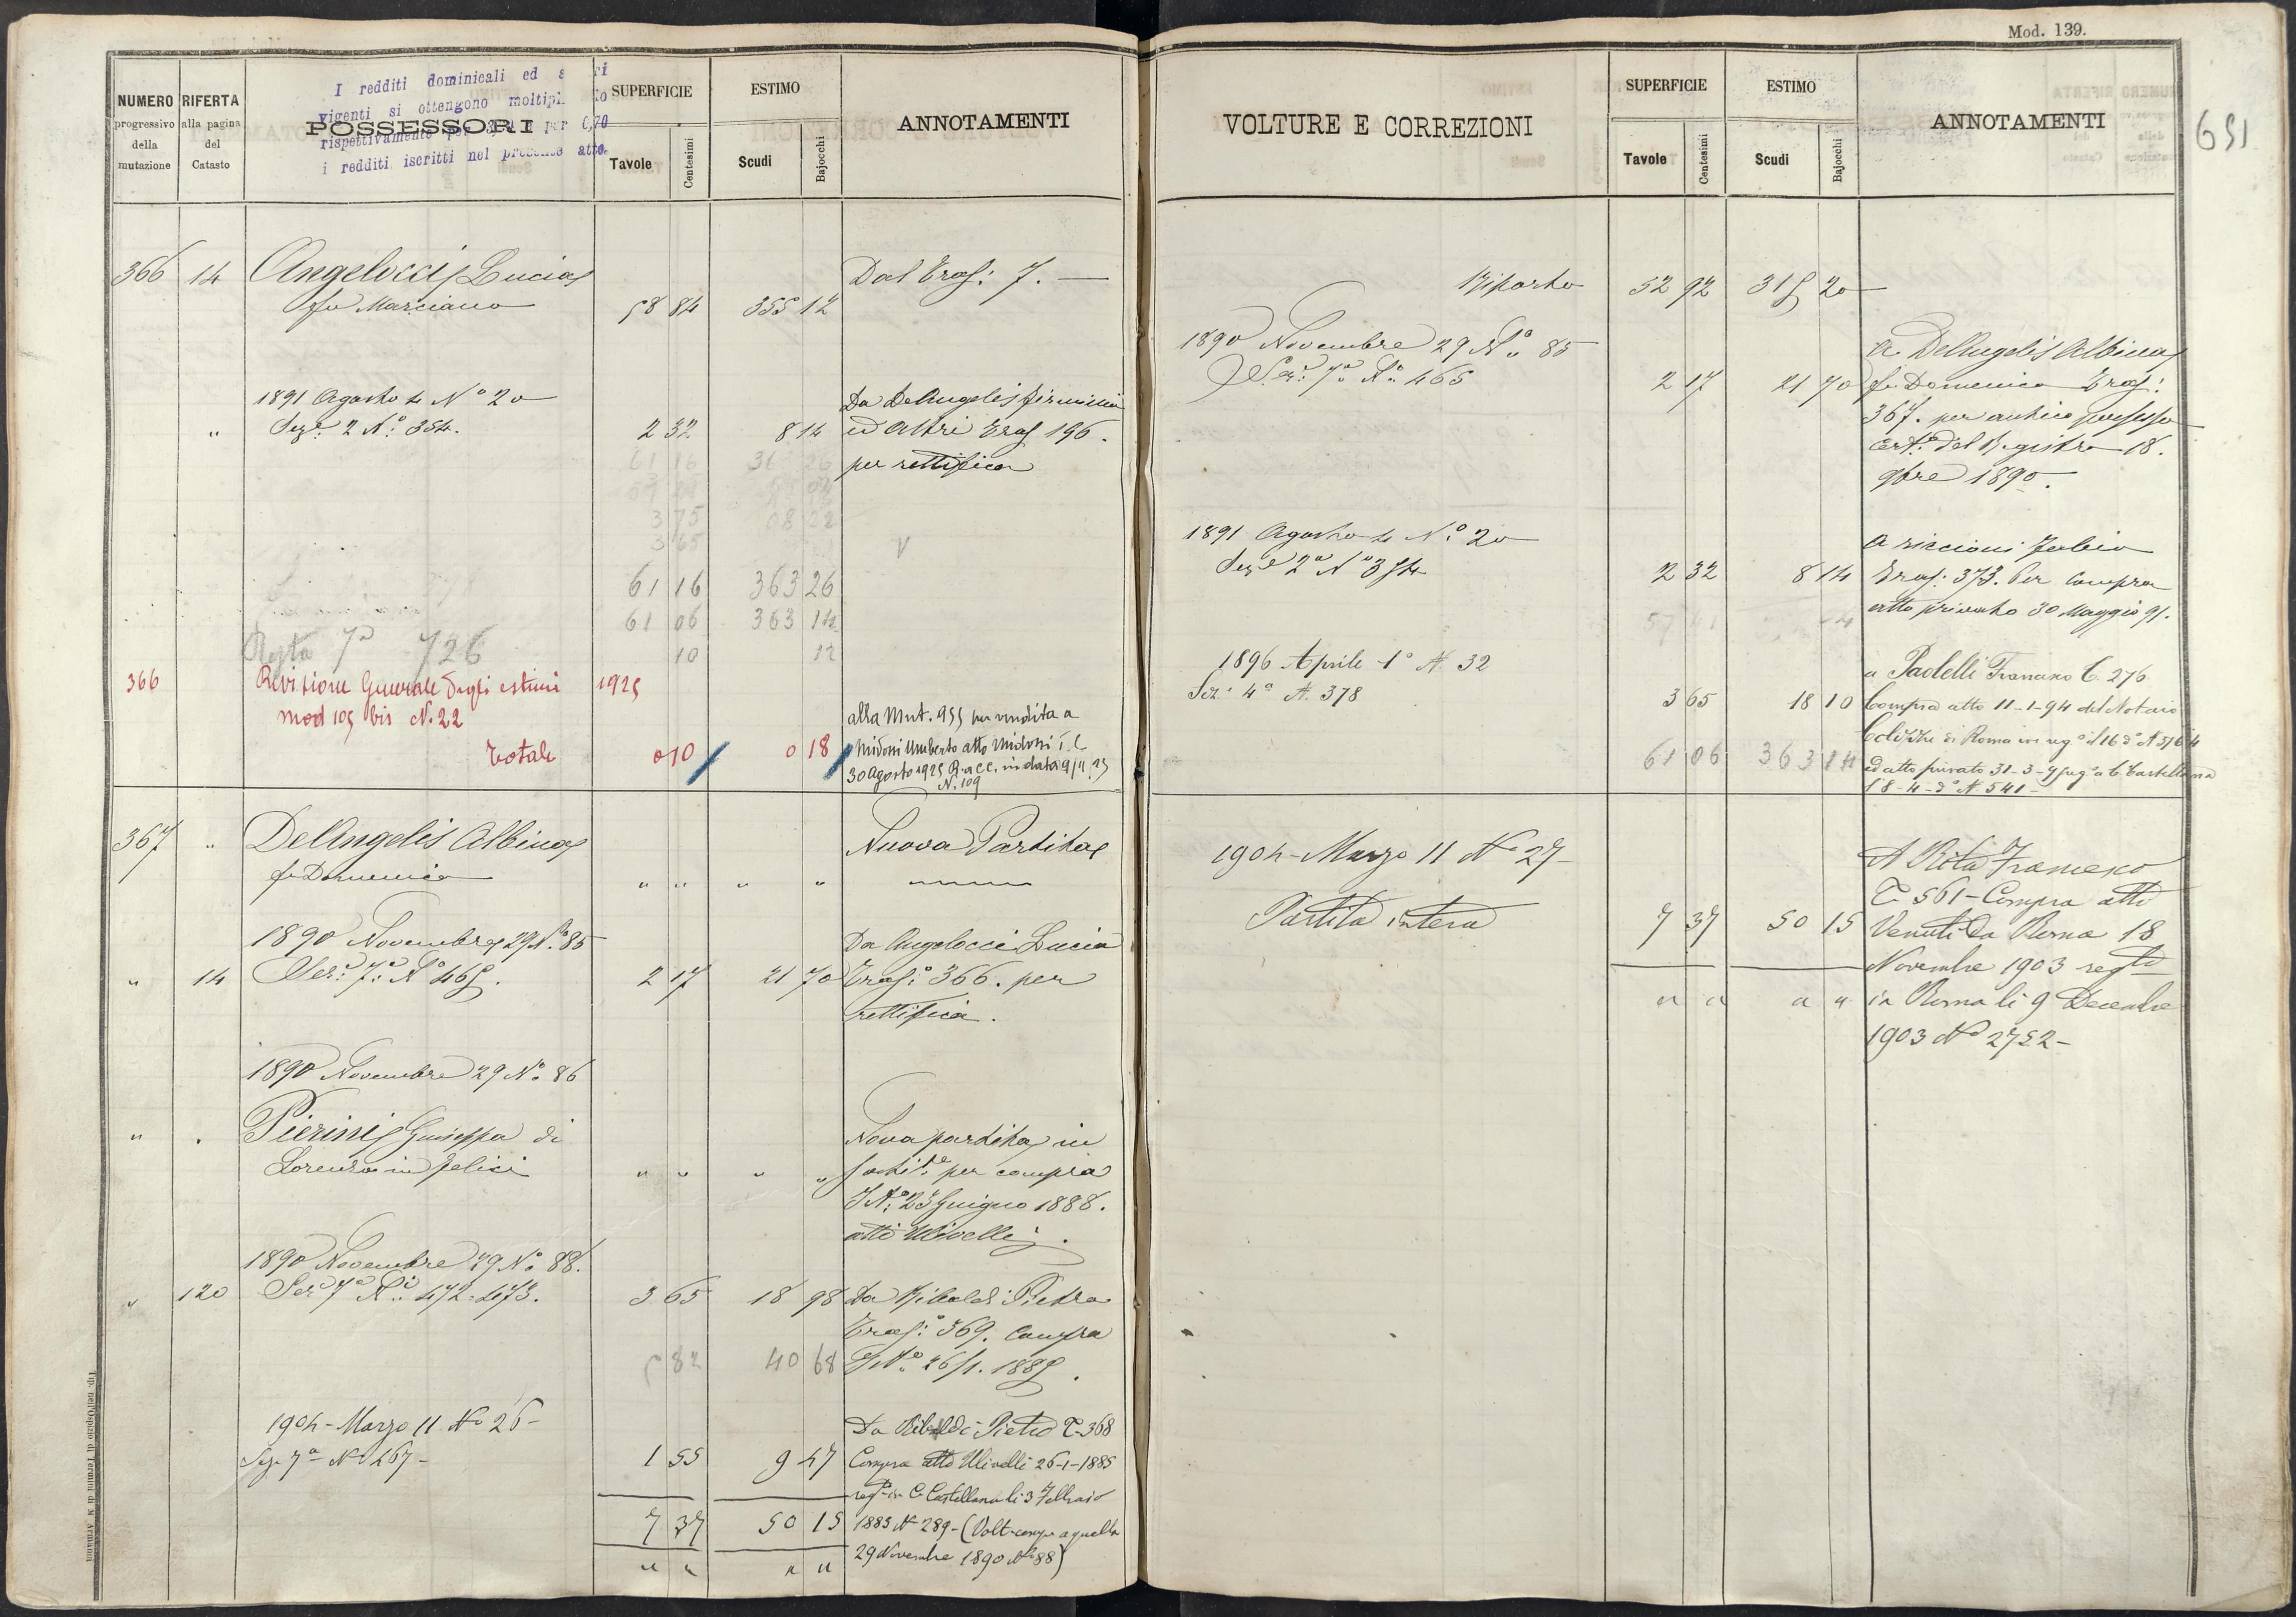 Mod. 139.
651
NUMERO progressivo della mutazione
RIFERTA alla pagina del Catasto
POSSESSORI
I redditi dominicali ed
vigenti si ottengono
rispettivamente per per 6,70
i redditi iscritti nel presente atto.
SUPERFICIE
Tavole
Centesimi
ESTIMO
Scudi
Bajocchi
ANNOTAMENTI
366 14 Angelocci Lucia Dal Trasf: 7. —
fu Marciano 58 84 355 12
1891 Agosto 4 N° 20 Da DeAngelis
" Sez.e 2 N.° 354. 2 32 8 14 ed altri Trasf 196.
61 16 36 26 per rettifica
3 75 08 22
3 65
61 16 363 26
61 06 363 14
Resta 7a 726 10 12
366 Revisione Generale degli estimi 1925
mod 105 bis N. 22
Totale 0 10 0 18
alla Mut. 955 per vendita a
Midoni Umberto atto Midossi
30 Agosto 1925 in data
N. 109
367 " DeAngelis Albina Nuova Partita
fu Domenico " " " "
1890 Novembre 29 N.° 85 Da Angelocci Lucia
" 14 Sez: 7a N° 465. 2 17 21 70 Trasf: 366. per
rettifica.
1890 Novembre 29 N° 86
" . Pierini Giuseppa di Nova partita in
Lorenzo in Felici " " " " per compra
23 Giugno 1888.
atti Ulivelli.
1890 Novembre 29 N° 88.
" 120 Sez 7a N.i 472. 473. 3 65 18 98 Da Ribaldi Pietro
Trasf: 369. Compra
5 82 40 68 26/1. 1885.
1904 - Marzo 11 N° 26 - Da Ribaldi Pietro T. 368
Sez 7a N° 467 - 1 55 9 47 Compra atto Ulivelli 26-1-1885
reg° in C. Castellana li 3 Febbraio
7 37 50 15 1885 N° 289 - (Volt. a quella
" " " " 29 Novembre 1890 N° 88)
VOLTURE E CORREZIONI
SUPERFICIE
Tavole
Centesimi
ESTIMO
Scudi
Bajocchi
ANNOTAMENTI
Riporto 52 92 315 20
1890 Novembre 29 N.° 85 a DeAngelis Albina
Sez: 7a N° 465 2 17 21 70 fu Domenico Trasf:
367. per antico possesso
Cert.° del Registro 18.
9bre 1890.
1891 Agosto 4 N° 20 a Riccioni Fabio
Sez.e 2a N° 354 2 32 8 14 Trasf: 373. Per Compra
atto privato 30 Maggio 91.
1896 Aprile 1° N. 32 a Paolelli Francesco T. 276
Sez. 4a N. 378 3 65 18 10 Compra atto 11-1-94 del Notaio
di Roma
61 06 363 14 ed atto privato 31-3- reg° a C. Castellana
18-4- N. 541-
1904 - Marzo 11 N° 27 - A Rita Francesco
Partita intera T. 561 - Compra atto
7 37 50 15 Venuti Da Roma 18
Novembre 1903 regto
" " " " in Roma li 9 Decembre
1903 N° 2752 -
Tip. nell'Ospizio di Termini di M. Armanni